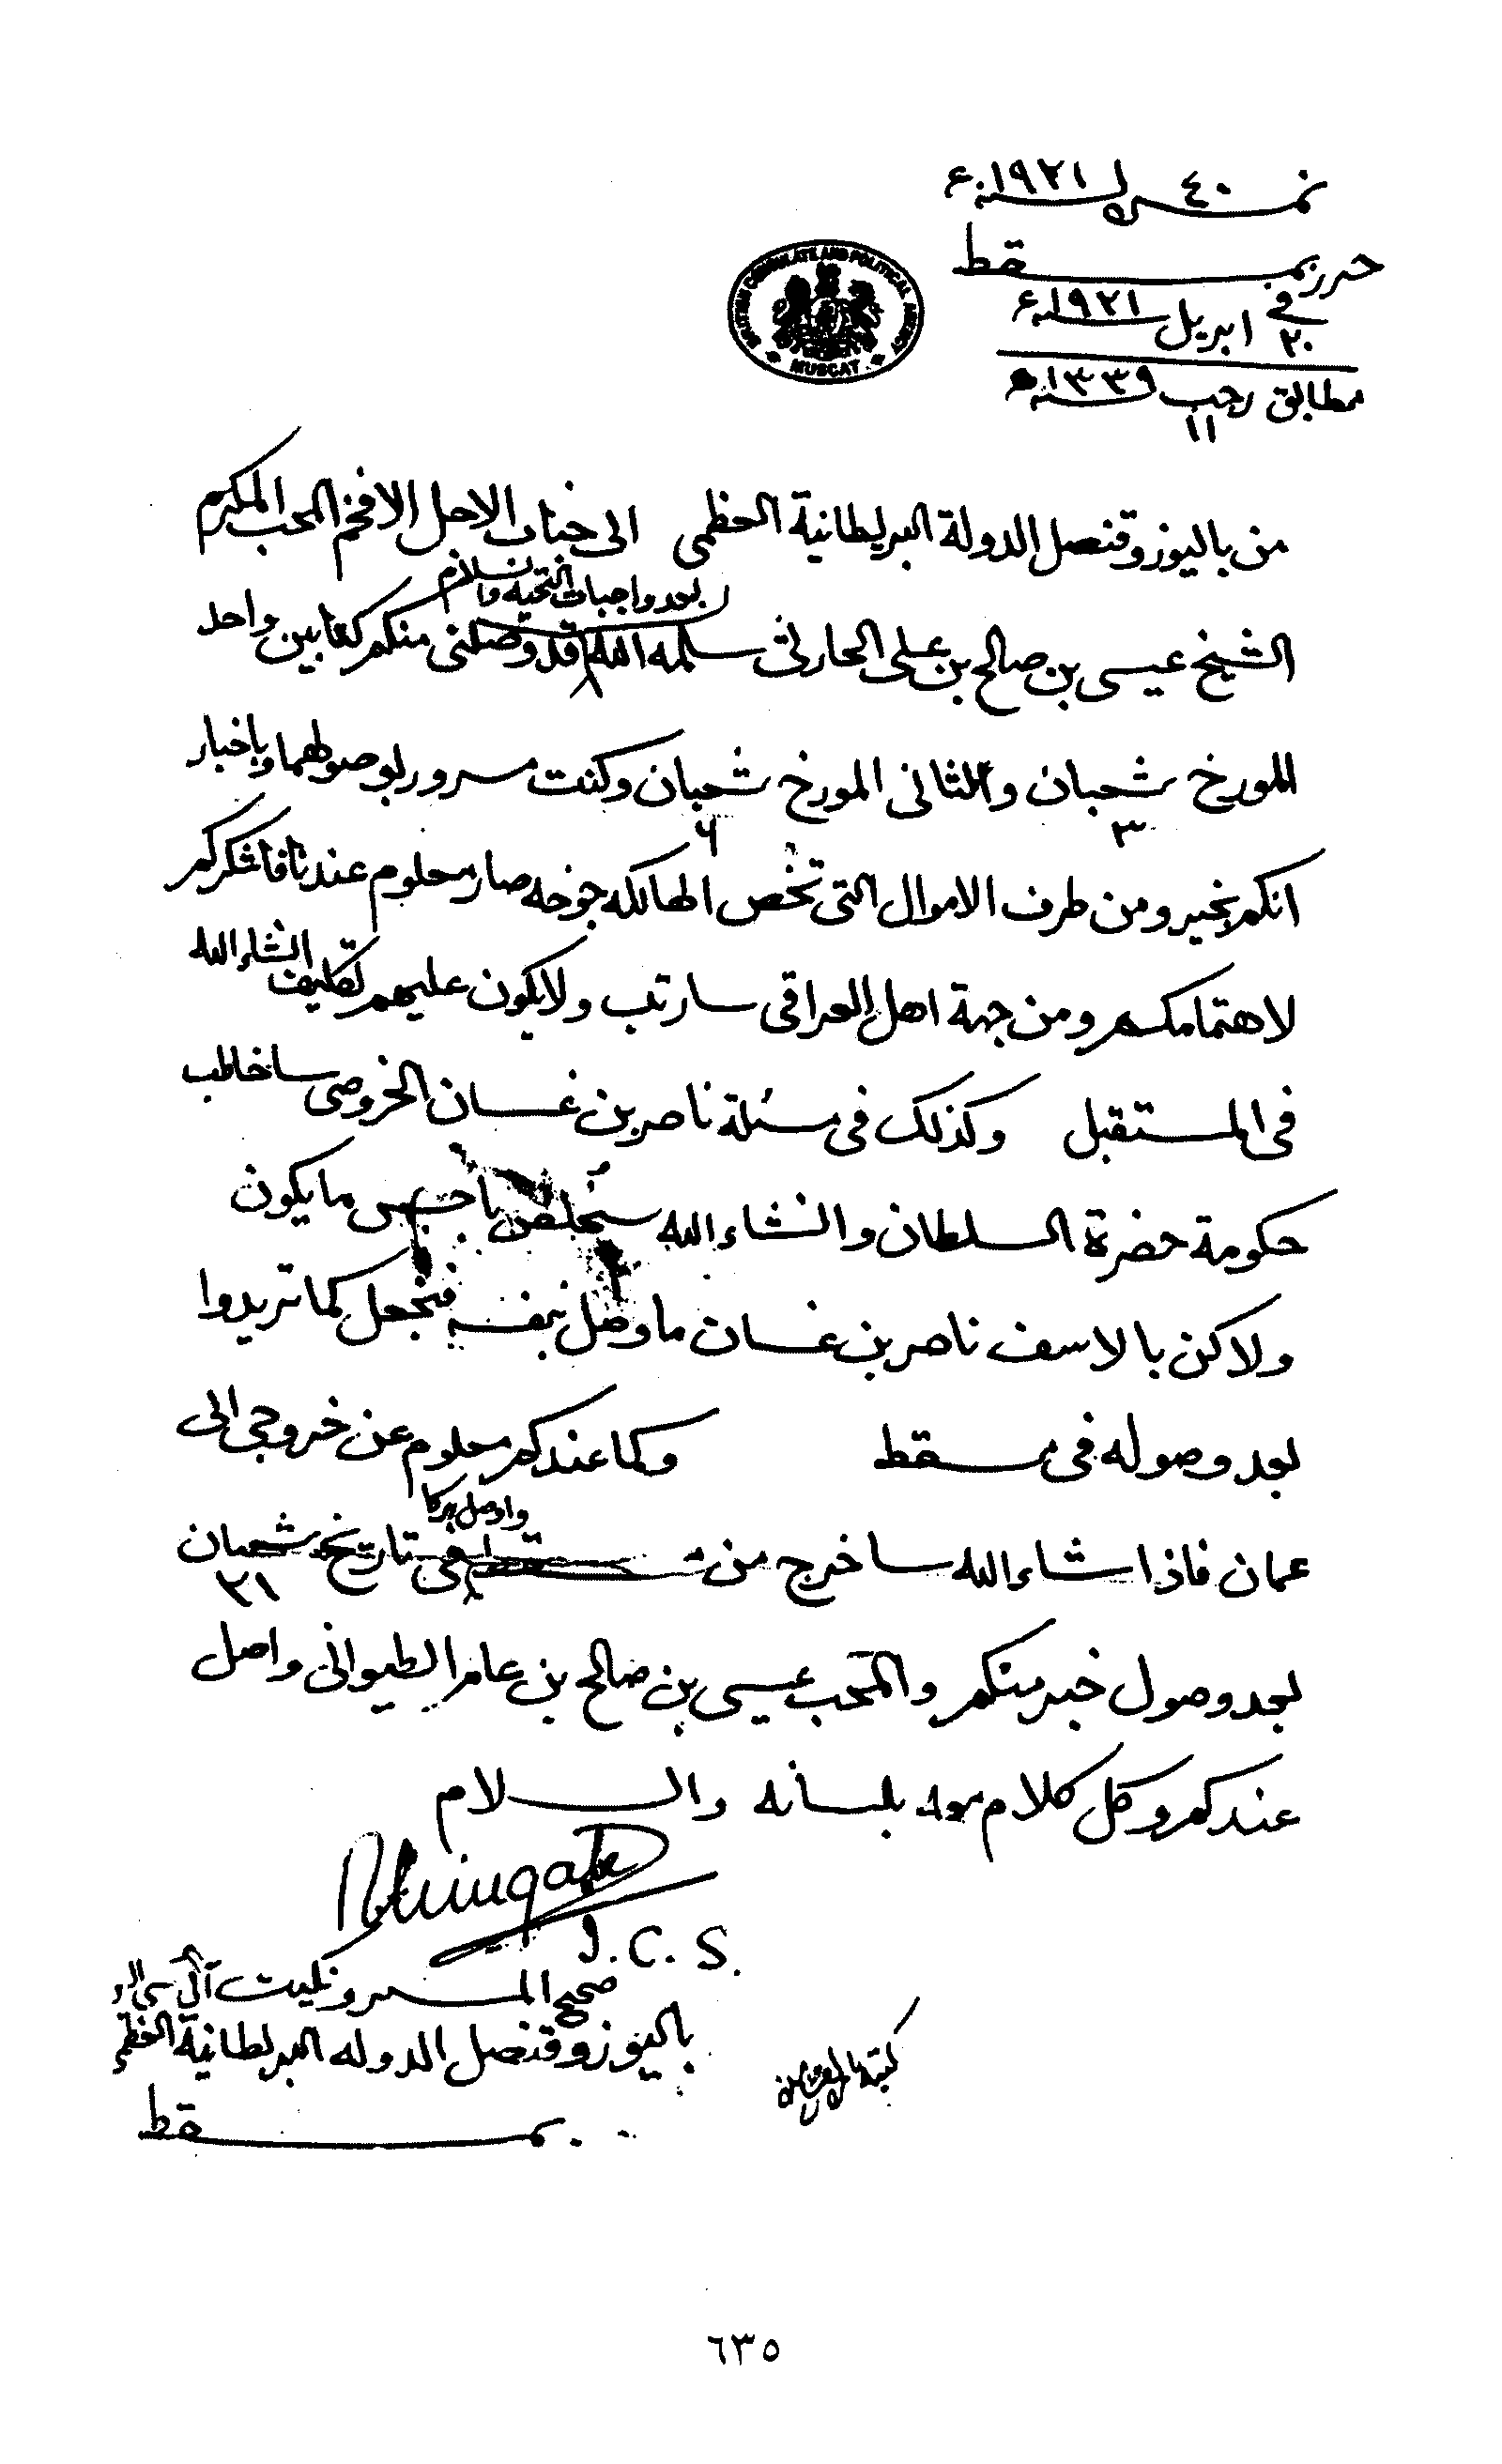 نمرة ٤٠ سنه ١٩٢١ع
BRITISH CONSULATE AND POLITICAL AGENCY
MUSCAT
حرر بمسقط
في ٢٠ ابريل سنه ١٩٢١ع
مطابق ١١ رجب سنه ١٣٣٩ه
من باليوز وقنصل الدولة البريطانية العظمى الى جناب الاجل الافخم المحب المكرم
بعد واجبات التحيه والسلام
الشيخ عيسى بن صالح بن علي الحارثي سلمه الله قد وصلني منكم كتابين واحد
المورخ ٣ شعبان والثاني المورخ ٦ شعبان وكنت مسرور بوصولهما وباخبار
انكم بخير ومن طرف الاموال التي تخص الهالكه جوخه صار معلوم عندنا فاشكركم
لاهتمامكم ومن جهة اهل العراقي سارتب ولا يكون عليهم تكليف انشاء الله
في المستقبل وكذلك في مسئلة ناصر بن غسان الخروصي ساخاطب
حكومة حضرة السلطان وانشاء الله ستخلص باحسن ما يكون
ولاكن بالاسف ناصر بن غسان ما وصل بنفسه فنجعل كما تريدوا
بعد وصوله في مسقط وكما عندكم معلوم عن خروجي الى
واوصل بركا
عمان فاذا شاء الله ساخرج من مسقط في تاريخ ٢١ شعبان
بعد وصول خبر منكم والمحب عيسى بن صالح بن عامر الطيواني واصل
عندكم وكل كلام معه بلسانه والسلام
R Wingate
I.C.S.
صحيح المستر ونگيت آئي سي اس
باليوز وقنصل الدوله البريطانية العظمى
بمسقط
٦٣٥